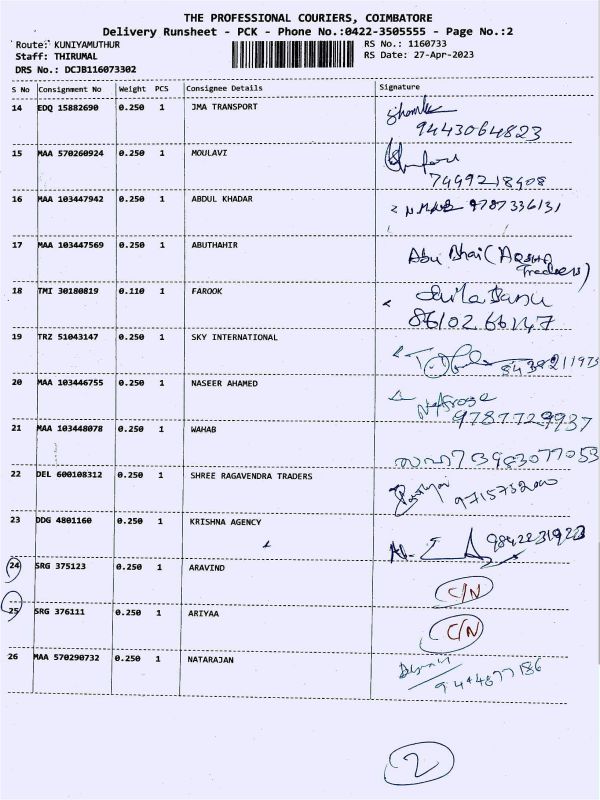 THE PROFESSIONAL COURIERS, COIMBATORE
Delivery Runsheet - PCK - Phone No.:0422-3505555 - Page No.:2
Route: KUNIYAMUTHUR
RS No.: 1160733
Staff: THIRUMAL
RS Date: 27-Apr-2023
DRS No.: DCJB116073302
S No Consignment No Weight PCS Consignee Details Signature
14 EDQ 15882690 0.250 1 JMA TRANSPORT
9443064823
15 MAA 570260924 0.250 1 MOULAVI
7499218908
16 MAA 103447942 0.250 1 ABDUL KHADAR 9787336131
17 MAA 103447569 0.250 1 ABUTHAHIR Abu Bhai (Arsha
Traders)
18 TMI 30180819 0.110 1 FAROOK Banu
86102 66147
19 TRZ 51043147 0.250 1 SKY INTERNATIONAL
20 MAA 103446755 0.250 1 NASEER AHAMED
9787729937
21 MAA 103448078 0.250 1 WAHAB
22 DEL 600108312 0.250 1 SHREE RAGAVENDRA TRADERS
23 DDG 4801160 0.250 1 KRISHNA AGENCY 9842231923
24 SRG 375123 0.250 1 ARAVIND C/N
25 SRG 376111 0.250 1 ARIYAA C/N
26 MAA 570290732 0.250 1 NATARAJAN
2